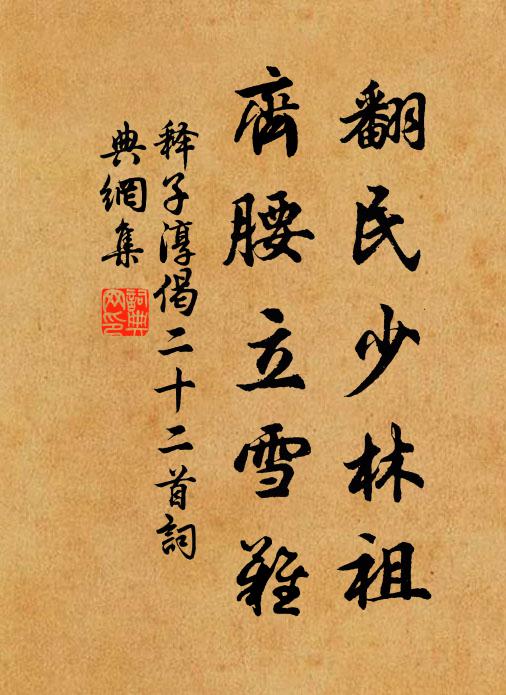 翻民少林祖
齊腰立雪難
釋子淳偈二十二首詞
典網集
詞典網印